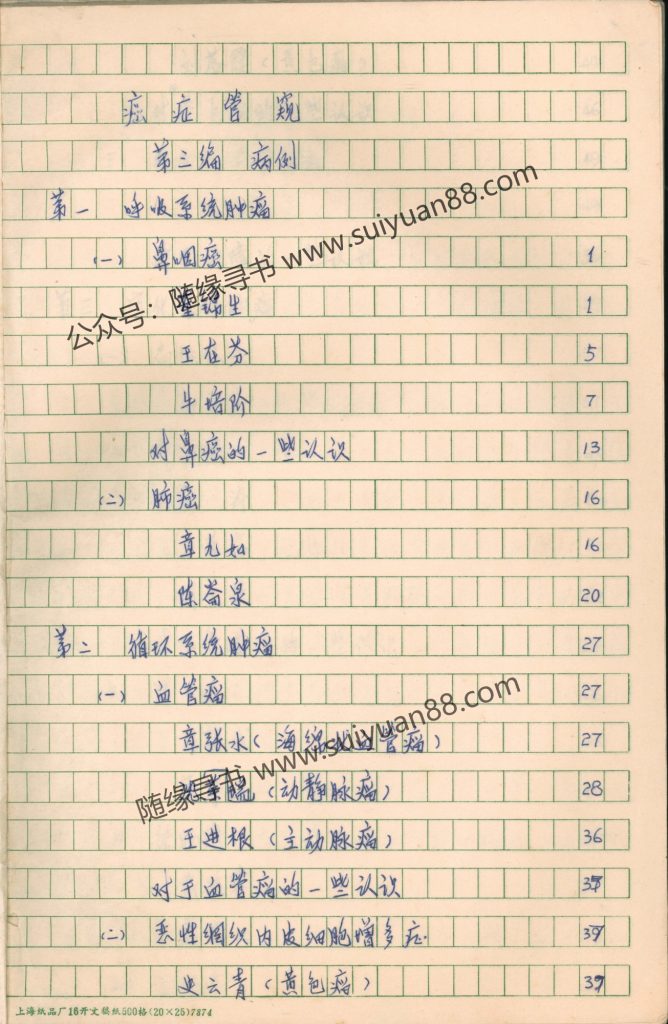 癌症管窥
第三编 病例
第一 呼吸系统肿瘤
(一) 鼻咽癌 1
生 1
公众号：随缘寻书 www.suiyuan88.com
王在芬 5
牛培阶 7
对鼻癌的一些认识 13
(二) 肺癌 16
章九如 16
陈崙泉 20
第二 循环系统肿瘤 27
(一) 血管瘤 27
章张水(海绵状血管瘤) 27
随缘寻书 www.suiyuan88.com
(动静脉瘤) 28
王进根(主动脉瘤) 36
对于血管瘤的一些认识
(二) 恶性网织内皮细胞增多症 39
史云青(黄色瘤) 39
上海纸品厂16开文稿纸500格(20×25)7874